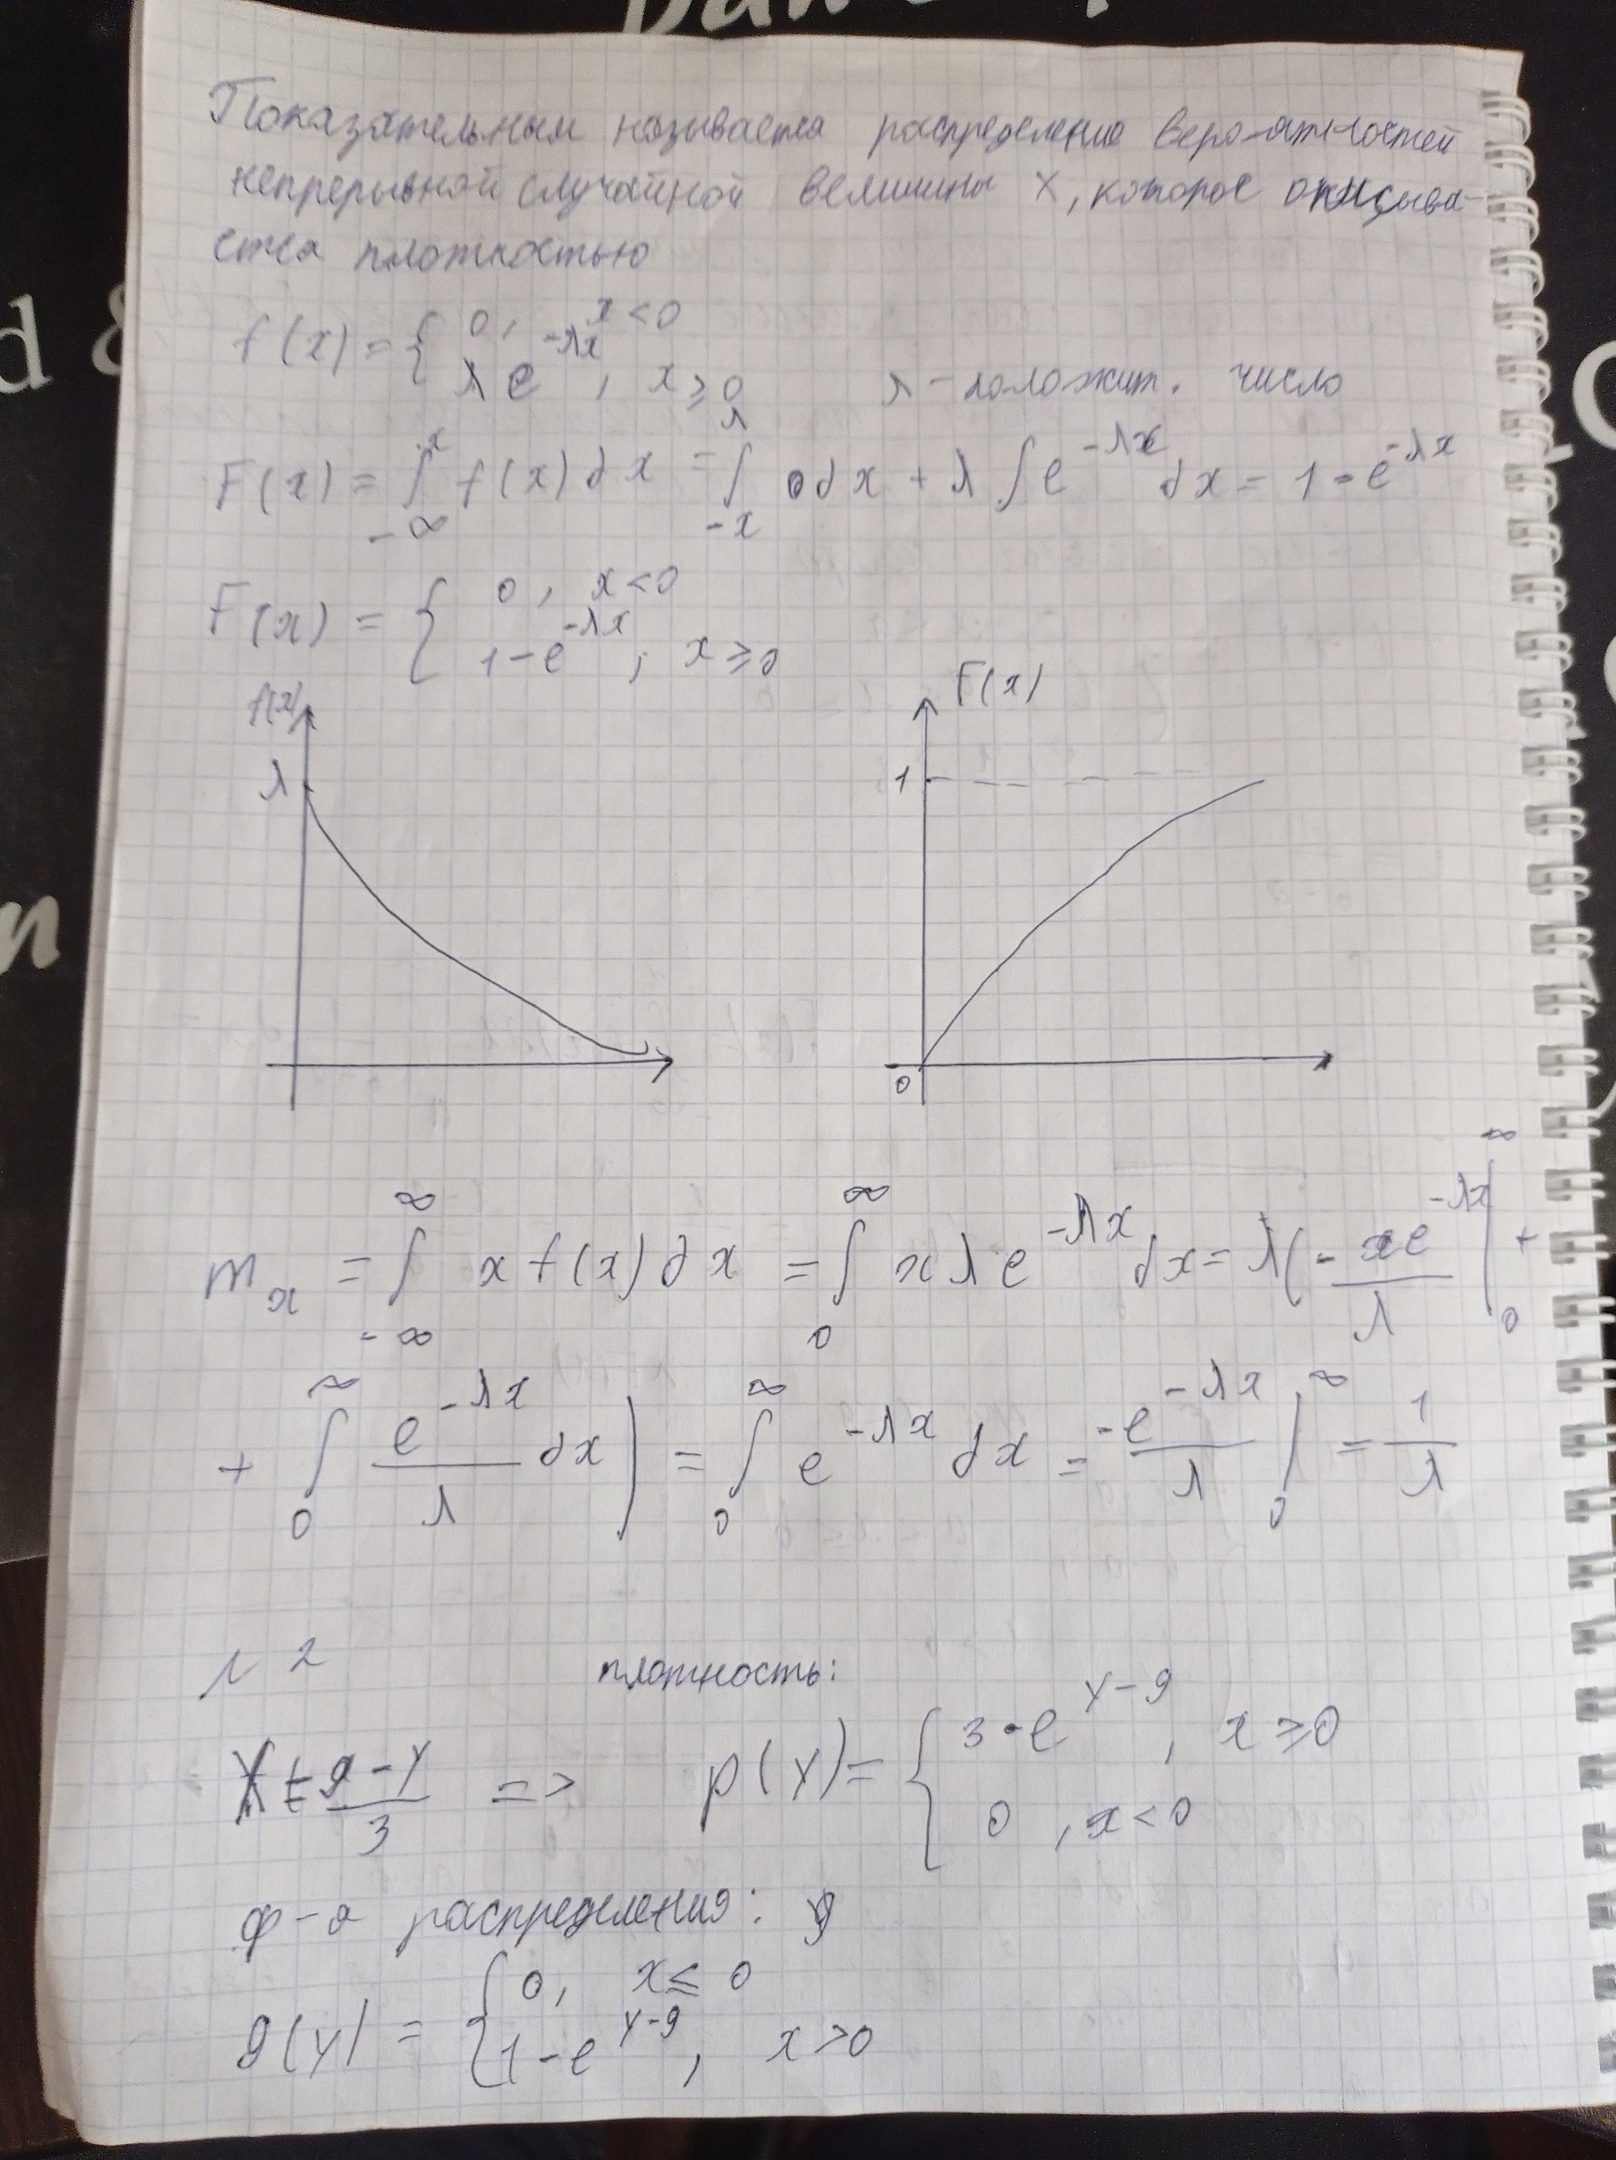 Показательным называется распределение вероятностей
непрерывной случайной величины X, которое описыва-
ется плотностью
f(x) = { 0, x < 0
λe^{-λx}, x ≥ 0 λ - положит. число
F(x) = ∫_{-∞}^{x} f(x)dx = ∫_{-x}^{λ} 0dx + λ∫e^{-λx}dx = 1 - e^{-λx}
F(x) = { 0, x < 0
1 - e^{-λx}, x ≥ 0
f(x) F(x)
λ 1
0
m_x = ∫_{-∞}^{∞} x f(x)dx = ∫_{0}^{∞} xλe^{-λx}dx = λ(-xe^{-λx}/λ |_{0}^{∞} +
+ ∫_{0}^{∞} e^{-λx}/λ dx) = ∫_{0}^{∞} e^{-λx}dx = -e^{-λx}/λ |_{0}^{∞} = 1/λ
2 плотность:
X = (9 - Y)/3 => p(Y) = { 3·e^{Y-9}, x ≥ 0
0, x < 0
ф-я распределения:
g(Y) = { 0, x ≤ 0
1 - e^{Y-9}, x > 0